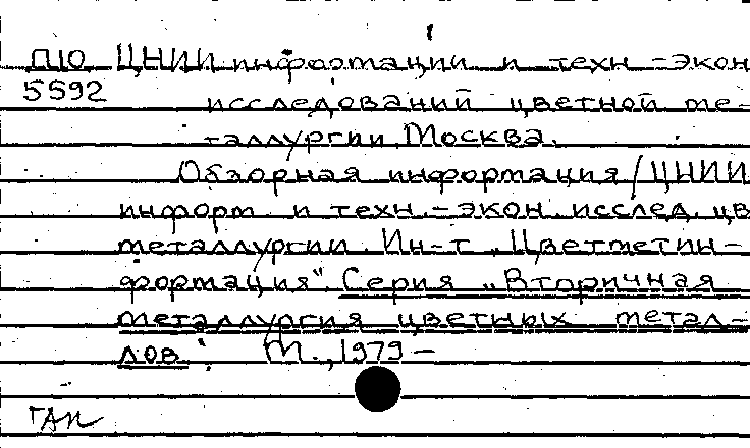 П10 ЦНИИ информации и техн-экон
5592 исследований цветной ме-
таллургии. Москва.
Обзорная информация/ЦНИИ
информ. и техн.-экон. исслед. цв
металлургии. Ин-т „Цветметин-
формация". Серия „Вторичная
металлургия цветных метал-
лов". М., 1979 –